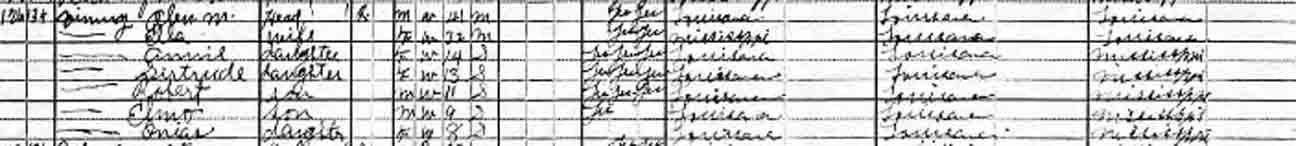 Vining Glen M. Head R M W 41 M Yes Yes Louisiana Louisiana Louisiana
Ella wife F W 32 M Yes Yes Mississippi Louisiana Mississippi
Annie daughter F W 14 S Yes Yes Yes Louisiana Louisiana Mississippi
Girtrude daughter F W 13 S Yes Yes Yes Louisiana Louisiana Mississippi
Robert son M W 11 S Yes Yes Yes Louisiana Louisiana Mississippi
Elmo son M W 9 S Yes Louisiana Louisiana Mississippi
daughter F W 8 S Louisiana Louisiana Mississippi